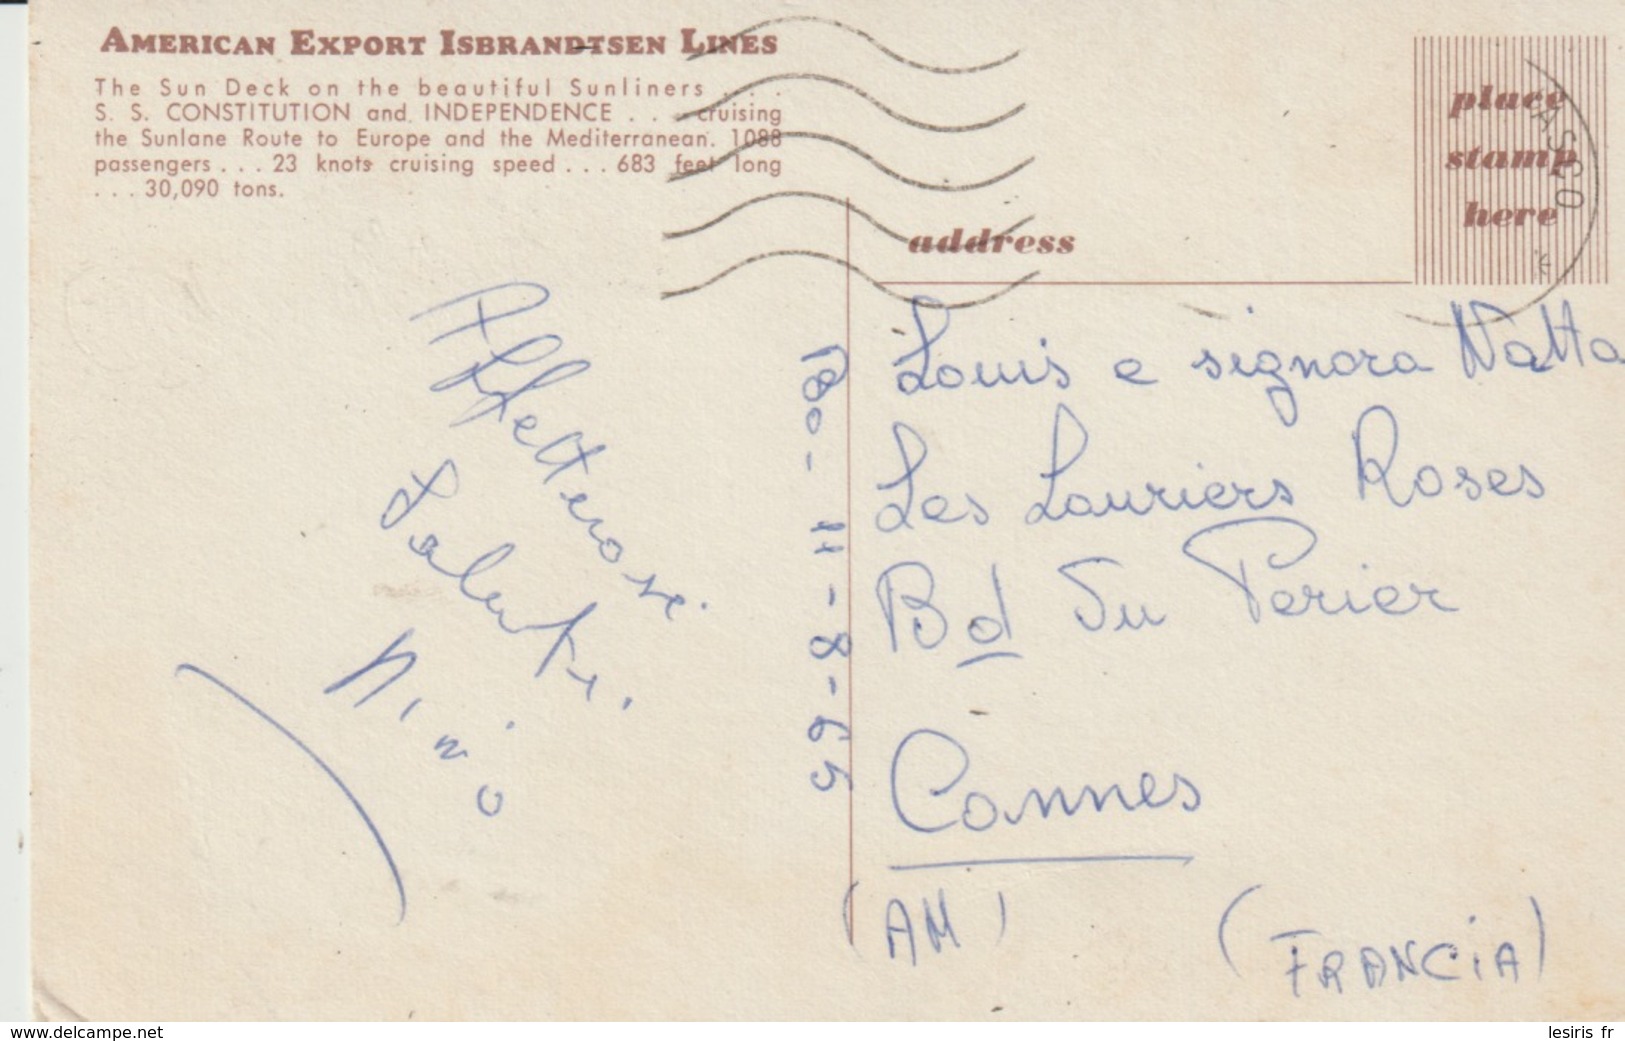 AMERICAN EXPORT ISBRANDTSEN LINES
The Sun Deck on the beautiful Sunliners . . .
S. S. CONSTITUTION and INDEPENDENCE . . . cruising
the Sunlane Route to Europe and the Mediterranean. 1088
passengers . . . 23 knots cruising speed . . . 683 feet long
. . . 30,090 tons.
place
stamp
here
address
Affettuosi
Saluti.
Nino
Louis e signora Natta
Les Lauriers Roses
Bd Du Perier
Cannes
(AM)
(FRANCIA)
www.delcampe.net
lesiris fr